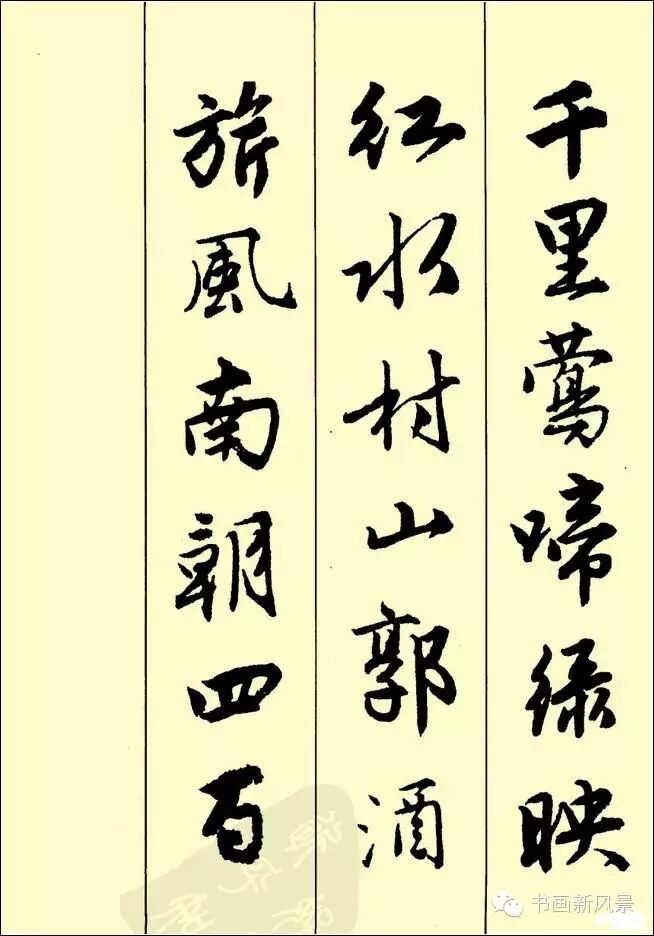 千里莺啼绿映
红水村山郭酒
旂風南朝四百
书画新风景